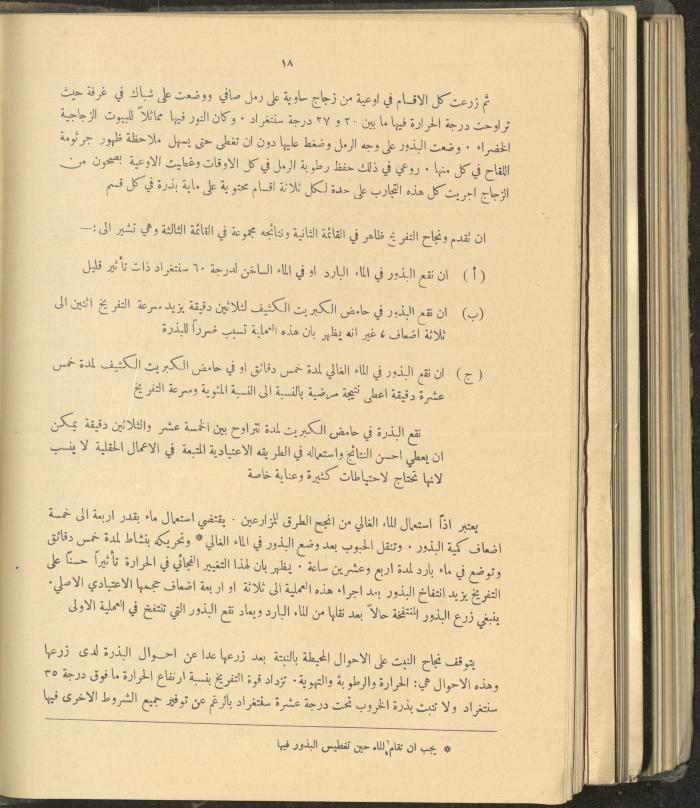 ١٨
ثم زرعت كل الاقسام في اوعية من زجاج ساوية على رمل صافي ووضعت على شباك في غرفة حيث
تراوحت درجة الحرارة فيها ما بين ٢٠ و ٢٧ درجة سنتغراد ٠ وكان النور فيها مماثلاً للبيوت الزجاجية
الخضراء ٠ وضعت البذور على وجه الرمل وضغط عليها دون ان تغطى حتى يسهل ملاحظة ظهور جرثومة
اللقاح في كل منها ٠ روعي في ذلك حفظ رطوبة الرمل في كل الاوقات وغطيت الاوعية بصحون من
الزجاج اجريت كل هذه التجارب على حدة لكل ثلاثة اقسام محتوية على ماية بذرة في كل قسم
ان تقدم ونجاح التفريخ ظاهر في القائمة الثانية ونتائجه مجموعة في القائمة الثالثة وهي تشير الى :—
( أ ) ان نقع البذور في الماء البارد او في الماء الساخن لدرجة ٦٠ سنتغراد ذات تأثير قليل
(ب) ان نقع البذور في حامض الكبريت الكثيف لثلاثين دقيقة يزيد سرعة التفريخ اثنين الى
ثلاثة اضعاف ، غير انه يظهر بان هذه العملية تسبب ضرراً للبذرة
( ج ) ان نقع البذور في الماء الغالي لمدة خمس دقائق او في حامض الكبريت الكثيف لمدة خمس
عشرة دقيقة اعطى نتيجة مرضية بالنسبة الى النسبة المئوية وسرعة التفريخ
نقع البذرة في حامض الكبريت لمدة تتراوح بين الخمسة عشر والثلاثين دقيقة يمكن
ان يعطي احسن النتائج واستعماله في الطريقه الاعتيادية المتبعة في الاعمال الحقلية لا ينسب
لانها تحتاج لاحتياطات كثيرة وعناية خاصة
يعتبر اذاً استعمال الماء الغالي من انجح الطرق للمزارعين ٠ يقتضي استعمال ماء بقدر اربعة الى خمسة
اضعاف كمية البذور ٠ وتنقل الحبوب بعد وضع البذور في الماء الغالي * وتحريكه بنشاط لمدة خمس دقائق
وتوضع في ماء بارد لمدة اربع وعشرين ساعة ٠ يظهر بان لهذا التغيير الفجائي في الحرارة تأثيراً حسناً على
التفريخ يزيد انتفاخ البذور بعد اجراء هذه العملية الى ثلاثة او اربعة اضعاف حجمها الاعتيادي الاصلي ٠
ينبغي زرع البذور المنتفخة حالاً بعد نقلها من الماء البارد ويعاد نقع البذور التي تنتفخ في العملية الاولى
يتوقف نجاح النبت على الاحوال المحيطة بالنبتة بعد زرعها عدا عن احوال البذرة لدى زرعها
وهذه الاحوال هي : الحرارة والرطوبة والتهوية ٠ تزداد قوة التفريخ بنسبة ارتفاع الحرارة ما فوق درجة ٣٥
سنتغراد ولا تنبت بذرة الخروب تحت درجة عشرة سفتغراد بالرغم عن توفيز جميع الشروط الاخرى فيها
* يجب ان تقام الماء حين تغطيس البذور فيها